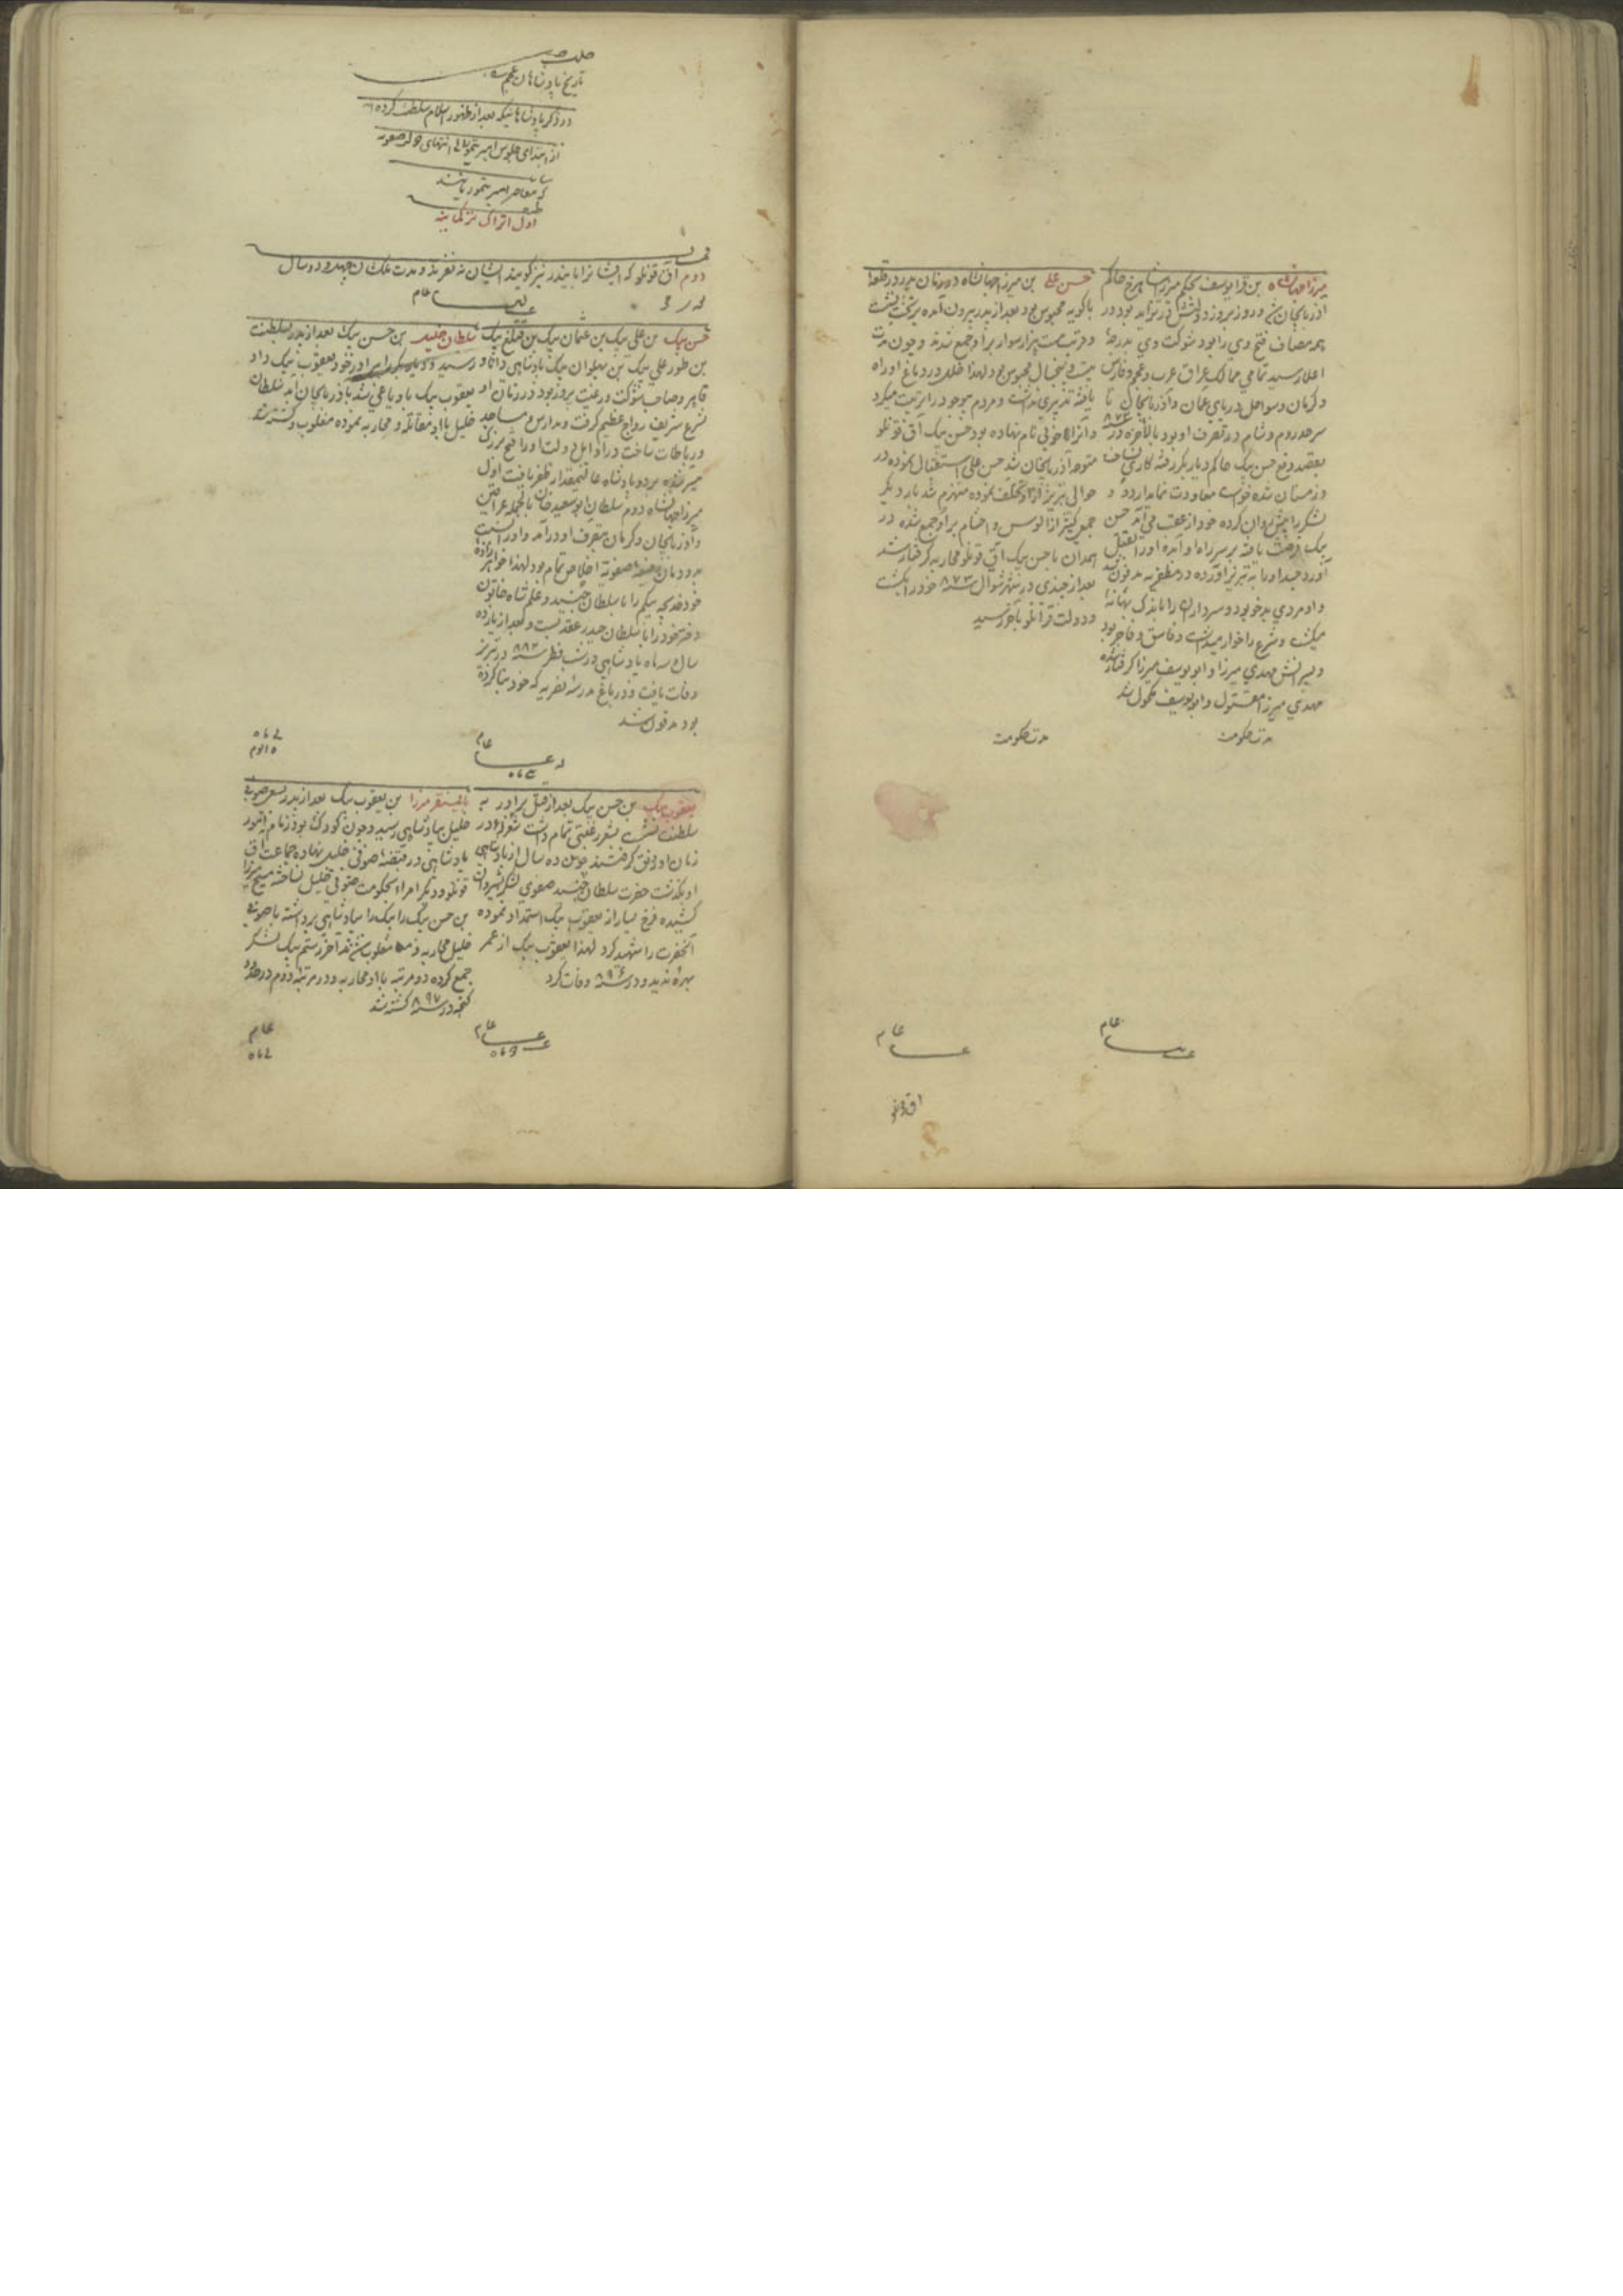 میرزا جهانشاه بن قرا یوسف بحکم میرزا شاهرخ حاکم
آذربایجان شد و روز بروز دولتش در تزاید بود در
همه مصاف فتح وی را بود شوکت وی بدرجهٔ
اعلا رسید تمامی ممالک عراق عرب و عجم و فارس
و کرمان و سواحل دریای عمان و آذربایجان تا
سرحد روم و شام در تصرف او بود بالاخره در
بقصد دفع حسن بیک حاکم دیاربکر رفته کاری نساخت
و زمستان شده خواست معاودت نماید اردو و
لشکر را پیش روان کرده خود از عقب می آمد حسن
بیک فرصت یافته بر سر راه او آمده او را بقتل
آورد جسد او را به تبریز آورده در مظفریه مدفون شد
و او مردی بدخو بود و سرداران را باندک بهانه
میکشت و شرع را خوار میداشت و فاسق و فاجر بود
و پسرانش مهدی میرزا و ابو یوسف میرزا گرفتار شده
مهدی میرزا مقتول و ابو یوسف مکحول شد
مدت حکومت
عام
حسن علی بن میرزا جهانشاه در زمان پدر در قلعهٔ
باکویه محبوس بود بعد از پدر بیرون آمده بر تخت نشست
و قریب هزار سوار بر او جمع شدند و چون مدت
بیست و پنج سال محبوس بود لهذا خلل در دماغ او راه
یافته تدبیری نداشت و مردم بی وجود را تربیت میکرد
و آنرا خوبی نام نهاده بود حسن بیک آق قونلو
متوجه آذربایجان شد حسن علی استقبال نموده در
حوالی تبریز از او تخلف نموده منهزم شد بار دیگر
جمع کثیر از الوس و احشام بر او جمع شده در
همدان با حسن بیک آق قونلو محاربه گرفتار شد
بعد از چندی در شهر شوال سنه ۸۷۳ خود را بکشت
و دولت قراقونلو بآخر رسید
مدت حکومت
عام
آق قونلو
تاریخ پادشاهان عجم
در ذکر پادشاهانیکه بعد از ظهور اسلام سلطنت کرده اند
از ابتدای جلوس امیر تیمور تا انتهای دولت صفویه
که معاصر امیر تیمور باشند
اول اتراک ترکمانیه
دوم آق قونلو که ایشانرا بایندریه نیز گویند ایشان نه نفرند و مدت ملک شان چهل و دو سال
عام
حسن بیک بن علی بیک بن عثمان بیک بن قتلغ بیک
بن طور علی بیک بن پهلوان بیک پادشاهی دانا و
قاهر و صاحب شوکت و رعیت پرور بود در زمان او
شرع شریف رواج عظیم گرفت و مدارس و مساجد
و رباطات ساخت در اوایل دولت او را فتح بزرگ
میسر شده بر دو پادشاه عالیمقدار ظفر یافت اول
میرزا جهانشاه دوم سلطان ابو سعید خان بالجمله عراقین
و آذربایجان و کرمان بتصرف او درآمد و او را نسبت
بدودمان صفویه اخلاص تمام بود لهذا خواهر
خود خدیجه بیکم را با سلطان جنید و علمشاه خاتون
دختر خود را با سلطان حیدر عقد بست و بعد از یازده
سال و سه ماه پادشاهی در شب فطر سنه ۸۸۲ در تبریز
وفات یافت و در باغ مدرسه نصریه که خود بنا کرده
بود مدفون شد
عام
سلطان خلیل بن حسن بیک بعد از پدر بسلطنت
رسید و دیاربکر را ببرادر خود یعقوب بیک داد
یعقوب بیک با وی یاغی شد بآذربایجان آمد سلطان
خلیل با او مقاتله و محاربه نموده مغلوب و کشته شد
یعقوب بیک بن حسن بیک بعد از قتل برادر به
سلطنت نشست بشعر رغبتی تمام داشت شعرا در
زمان او رونق گرفتند چون ده سال از پادشاهی
او بگذشت حضرت سلطان جنید صفوی لشکر بشیروان
کشیده فرخ یسار از یعقوب بیک استمداد نموده
آنحضرت را شهید کرد لهذا یعقوب بیک از عمر
بهره ندید و در سنه ۸۹۶ وفات کرد
عام
بایسنقر میرزا بن یعقوب بیک بعد از پدر بسعی صوفی
خلیل بپادشاهی رسید و چون کودک بود زمام امور
پادشاهی در قبضهٔ صوفی خلیل نهاده جماعت آق
قونلو و دیگر امرا بحکومت صوفی خلیل نساخته مسیح میرزا
بن حسن بیک را بپادشاهی برداشته با صوفی
خلیل محاربه و مغلوب شدند آخر رستم بیک لشکر
جمع کرده دو مرتبه با او محاربه و در مرتبه دوم در حدود
گنجه در سنه ۸۹۷ کشته شد
عام